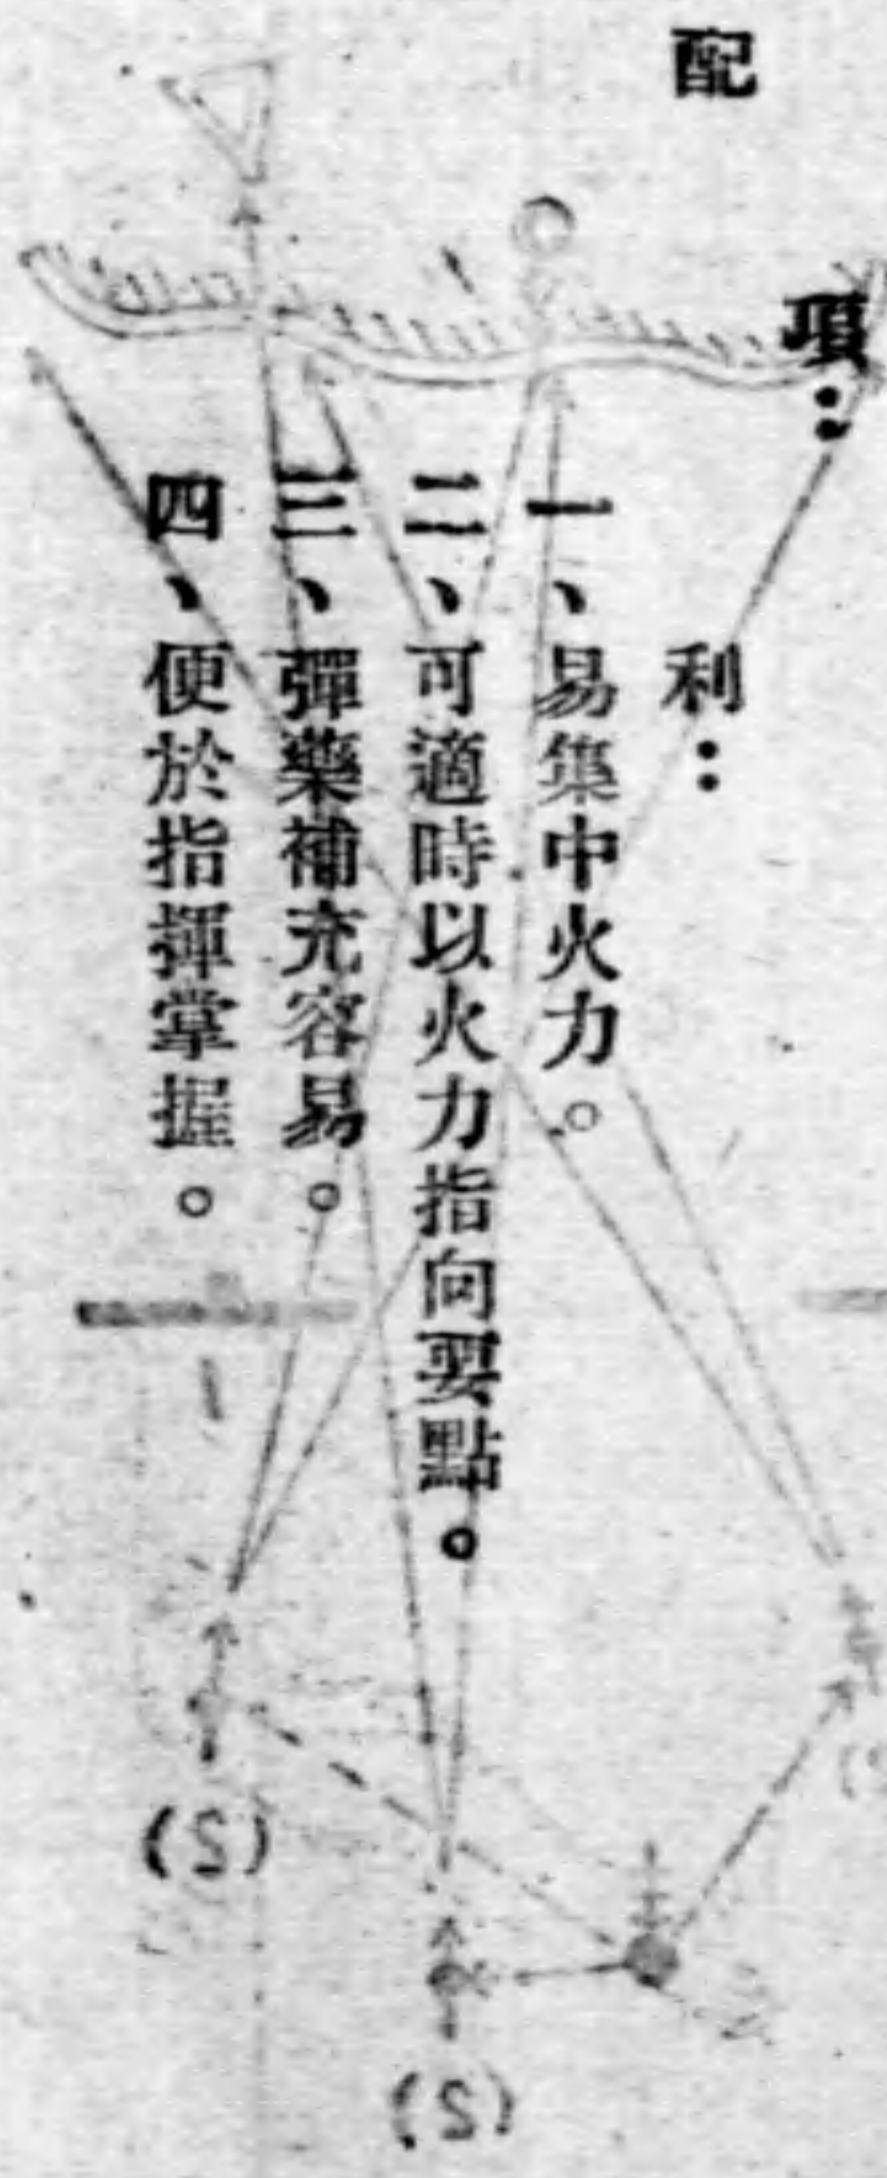 項：
配
利：
一、易集中火力。
二、可適時以火力指向要點。
三、彈藥補充容易。
四、便於指揮掌握。